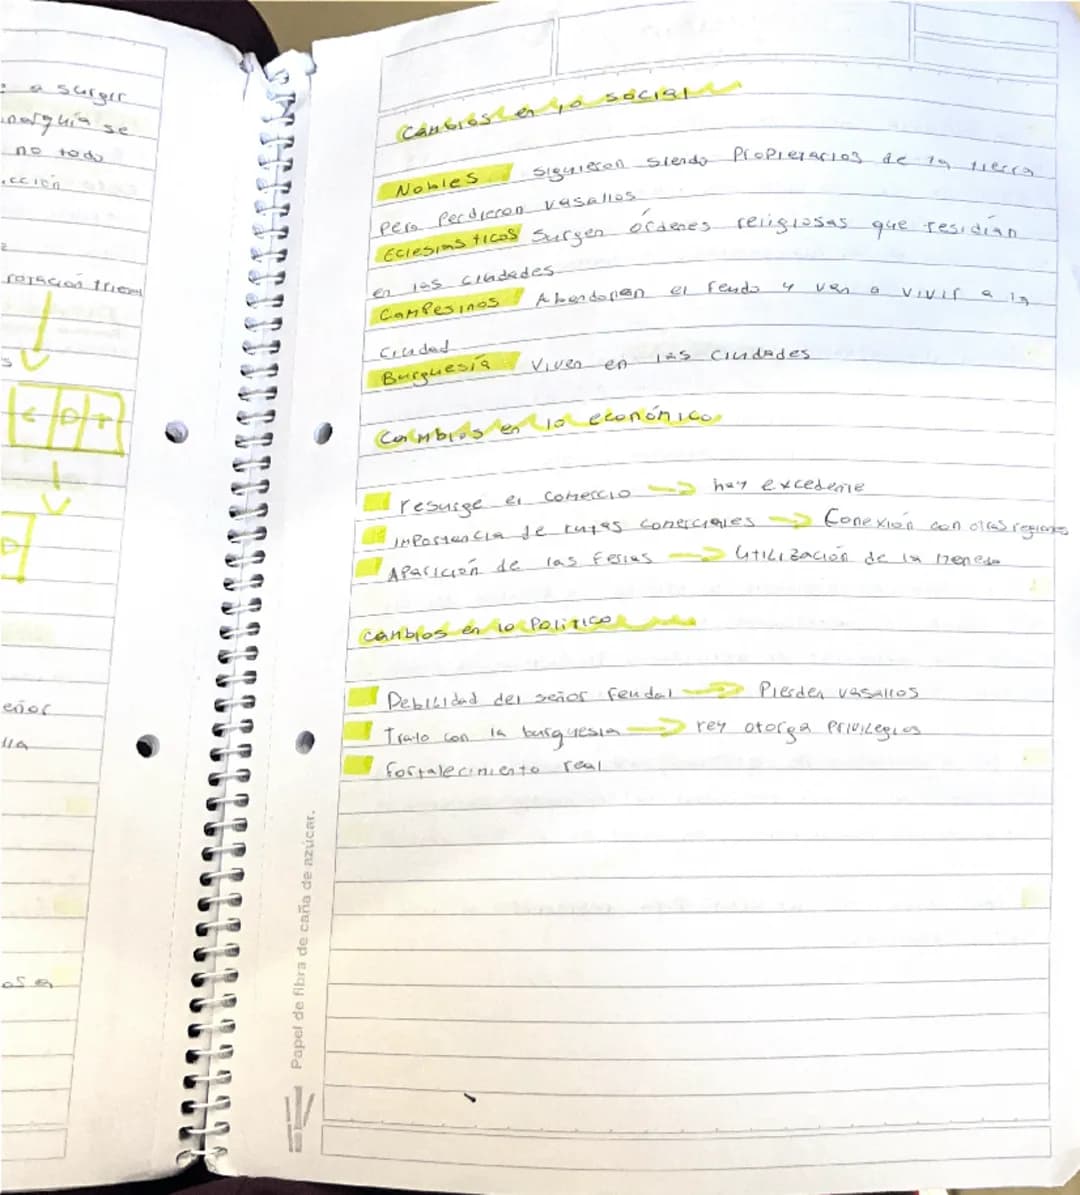 a surgir
narquía se
no todo
cción
rotación trien
C D T
D
eñor
lla
os a
Cambios en lo social
Nobles Siguieron siendo Propietarios de la tierra
Pero Perdieron vasallos
Eclesiasticos Surgen órdenes religiosas que residían
en las ciudades
Campesinos Abandonan el feudo y van a vivir a la
Ciudad
Burguesía Viven en las Ciudades
Cambios en lo económico
resurge el Comercio → hay excedente
Importancia de rutas comerciales → Conexión con otras regiones
Aparición de las Ferias → Utilización de la moneda
Cambios en lo Politico
Debilidad del señor feudal → Pierden vasallos
Trato con la burguesia → rey otorga Privilegios
Fortalecimiento real
Papel de fibra de caña de azúcar.